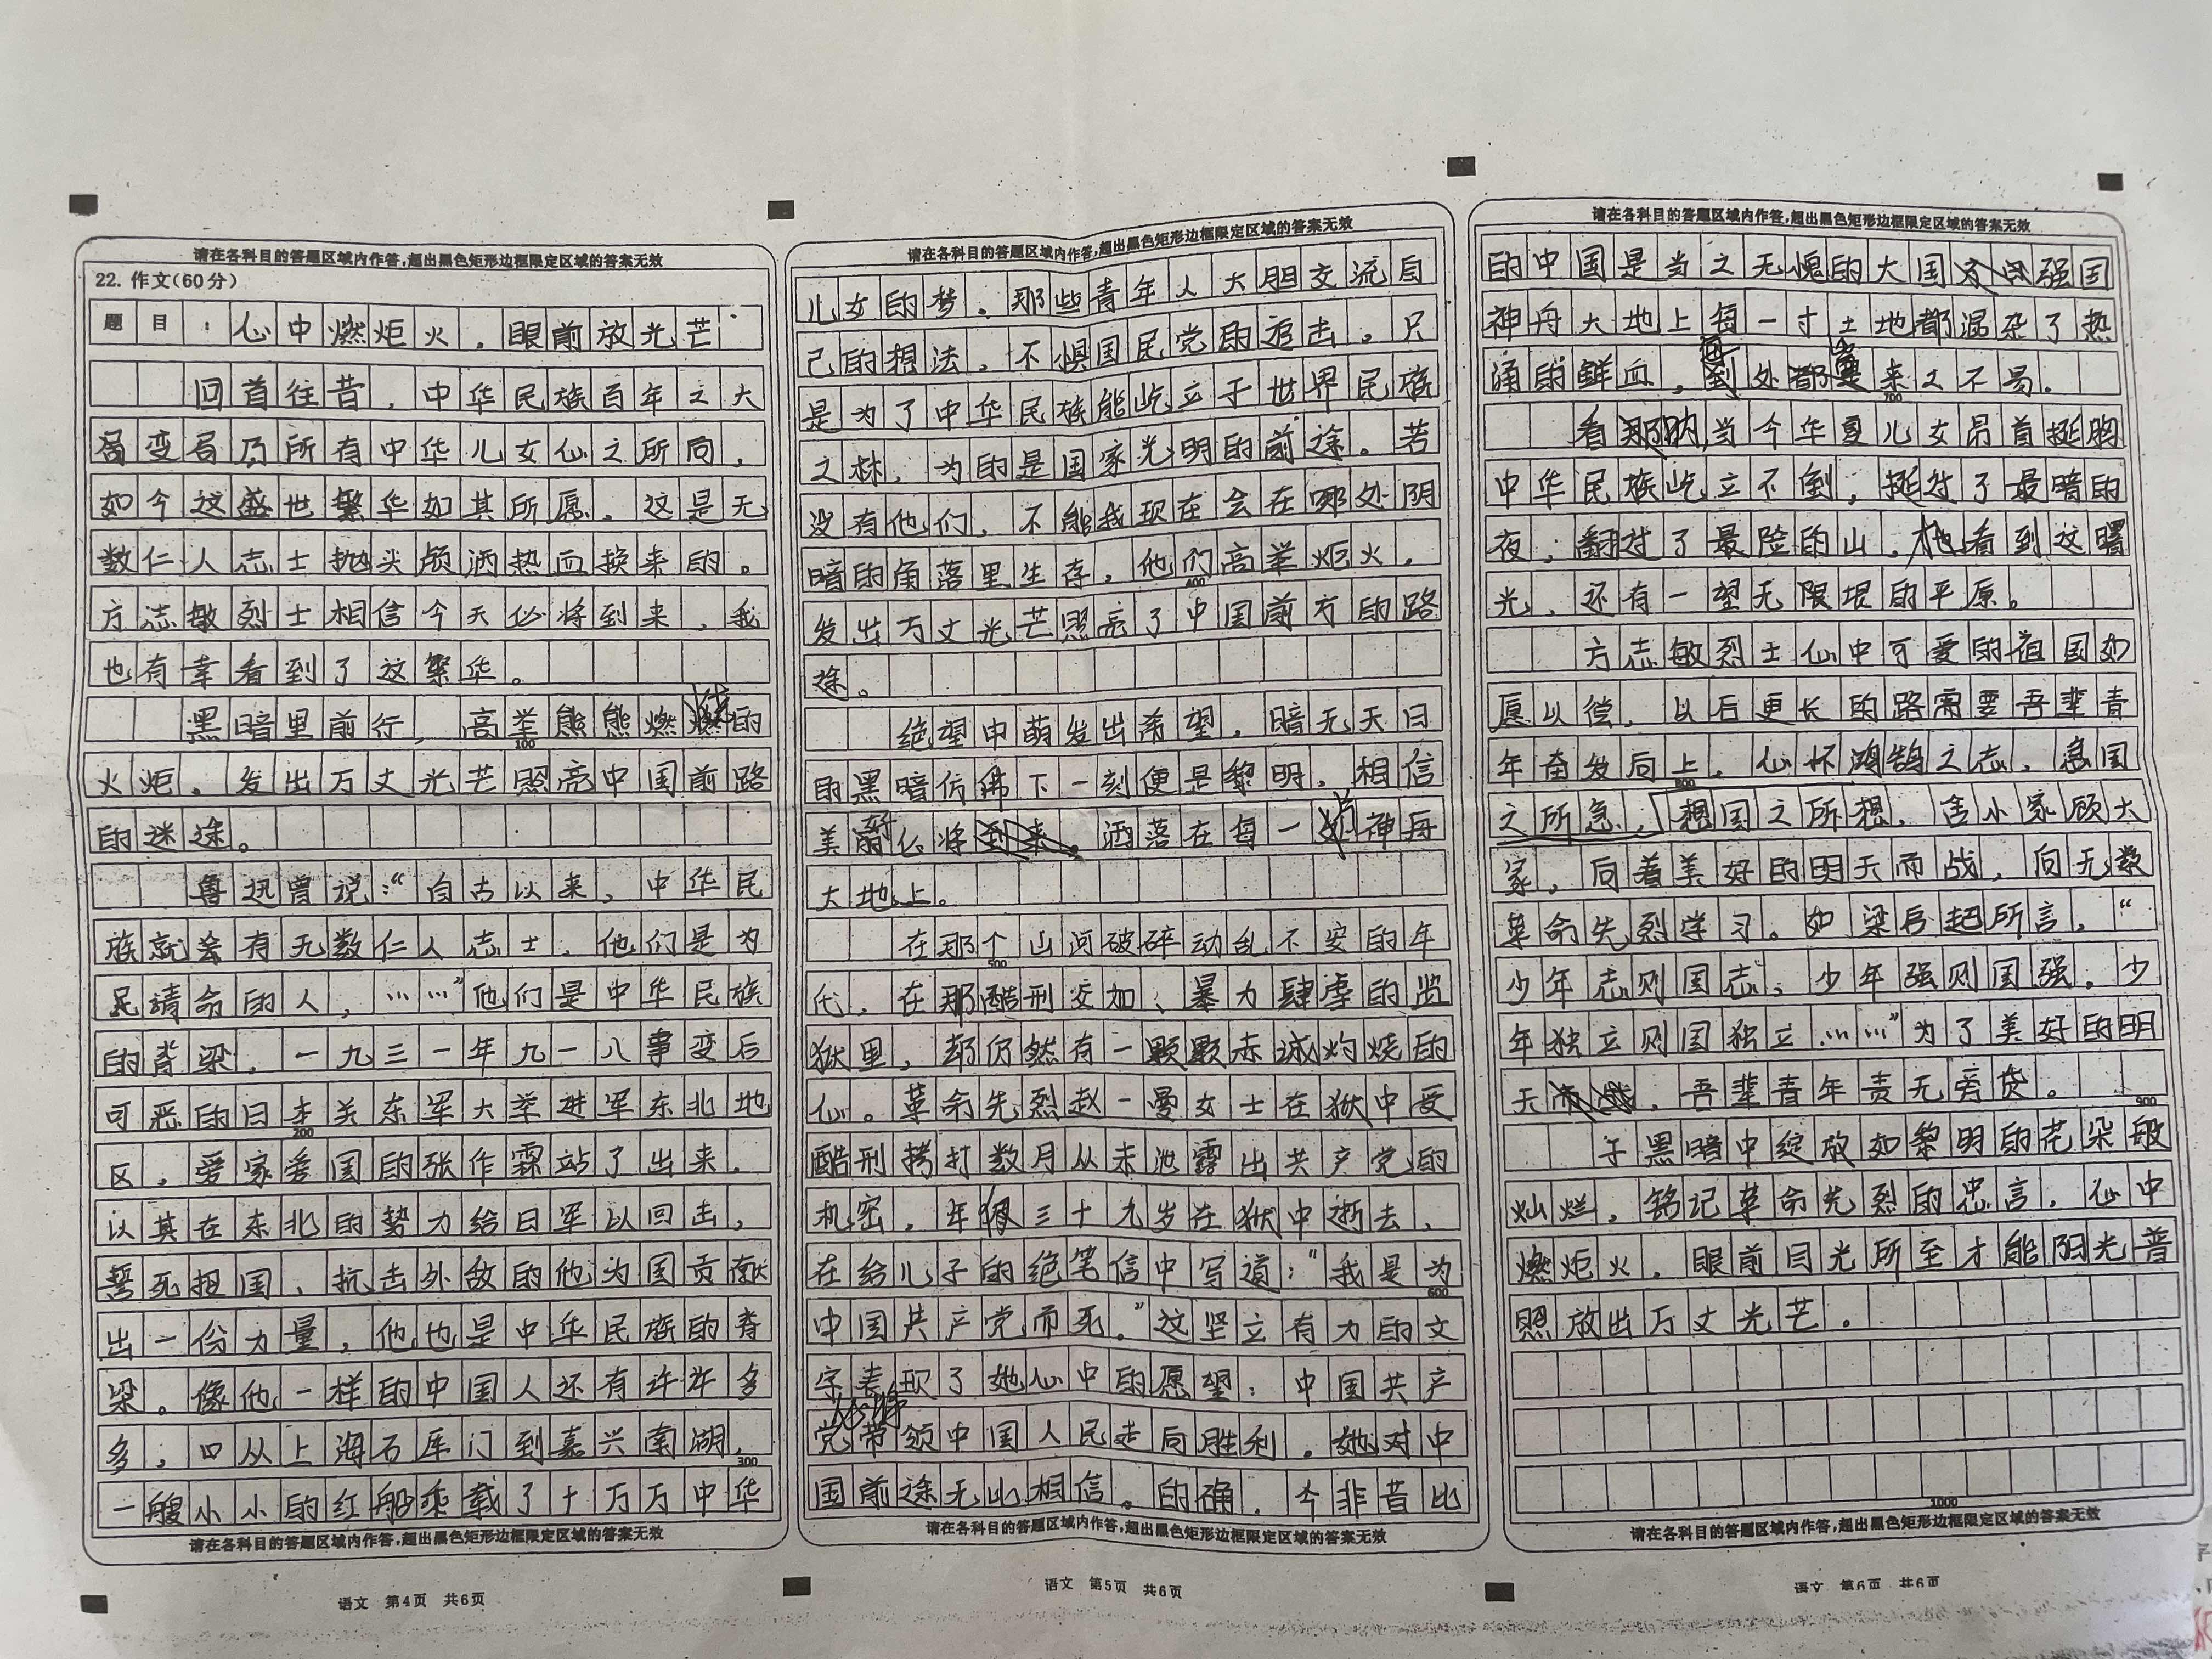 请在各科目的答题区域内作答,超出黑色矩形边框限定区域的答案无效
22. 作文(60分)
题目：心中燃炬火，眼前放光芒
回首往昔，中华民族百年之大
局变局乃所有中华儿女心之所向，
如今这盛世繁华如其所愿。这是无
数仁人志士抛头颅洒热血换来的。
方志敏烈士相信今天必将到来，我
也有幸看到了这繁华。
黑暗里前行，高举熊熊燃烧的
火炬。发出万丈光芒照亮中国前路
的迷途。
鲁迅曾说：“自古以来，中华民
族就会有无数仁人志士，他们是为
民请命的人，……”他们是中华民族
的脊梁。一九三一年九一八事变后
可恶的日本关东军大举进军东北地
区，爱家爱国的张作霖站了出来，
以其在东北的势力给日军以回击，
誓死担国、抗击外敌的他为国贡献
出一份力量，他也是中华民族的脊
梁。像他一样的中国人还有许许多
多，从上海石库门到嘉兴南湖，
100
200
300
一艘小小的红船乘载了十万万中华
请在各科目的答题区域内作答,超出黑色矩形边框限定区域的答案无效
语文 第4页 共6页
请在各科目的答题区域内作答,超出黑色矩形边框限定区域的答案无效
儿女的梦。那些青年人大胆交流自
己的想法，不惧国民党的追击。只
是为了中华民族能屹立于世界民族
之林，为的是国家光明的前途。若
没有他们，不能我现在会在哪处阴
暗的角落里生存，他们高举炬火，
400
发出万丈光芒照亮了中国前方的路
途。
绝望中萌发出希望，暗无天日
的黑暗仿佛下一刻便是黎明，相信
美好必将洒落在每一神舟
大地上。
在那个山河破碎动乱不安的年
500
代，在那酷刑交加、暴力肆虐的监
狱里，却仍然有一颗颗赤诚灼烧的
心。革命先烈赵一曼女士在狱中受
酷刑拷打数月从未泄露出共产党的
机密，年仅三十九岁在狱中逝去，
在给儿子的绝笔信中写道：“我是为
600
中国共产党而死。”这坚立有力的文
字表现了她心中的愿望：中国共产
党必将带领中国人民走向胜利。她对中
国前途无比相信。的确，今非昔比
请在各科目的答题区域内作答,超出黑色矩形边框限定区域的答案无效
语文 第5页 共6页
请在各科目的答题区域内作答,超出黑色矩形边框限定区域的答案无效
的中国是当之无愧的大国强国
神舟大地上每一寸土地都混杂了热
涌的鲜血，每处都实来之不易。
700
看当今华夏儿女昂首挺胸
中华民族屹立不倒，挺过了最暗的
夜，翻过了最险的山，也看到这曙
光，还有一望无限垠的平原。
方志敏烈士心中可爱的祖国如
愿以偿，以后更长的路需要吾辈青
年奋发向上，心怀鸿鹄之志，急国
800
之所急，想国之所想，舍小家顾大
家，向着美好的明天而战，向无数
革命先烈学习。如梁启超所言，“
少年志则国志，少年强则国强，少
年独立则国独立……”为了美好的明
天，吾辈青年责无旁贷。
900
于黑暗中绽放如黎明的花朵般
灿烂，铭记革命先烈的忠言，心中
燃炬火，眼前目光所至才能阳光普
照放出万丈光芒。
1000
请在各科目的答题区域内作答,超出黑色矩形边框限定区域的答案无效
语文 第6页 共6页